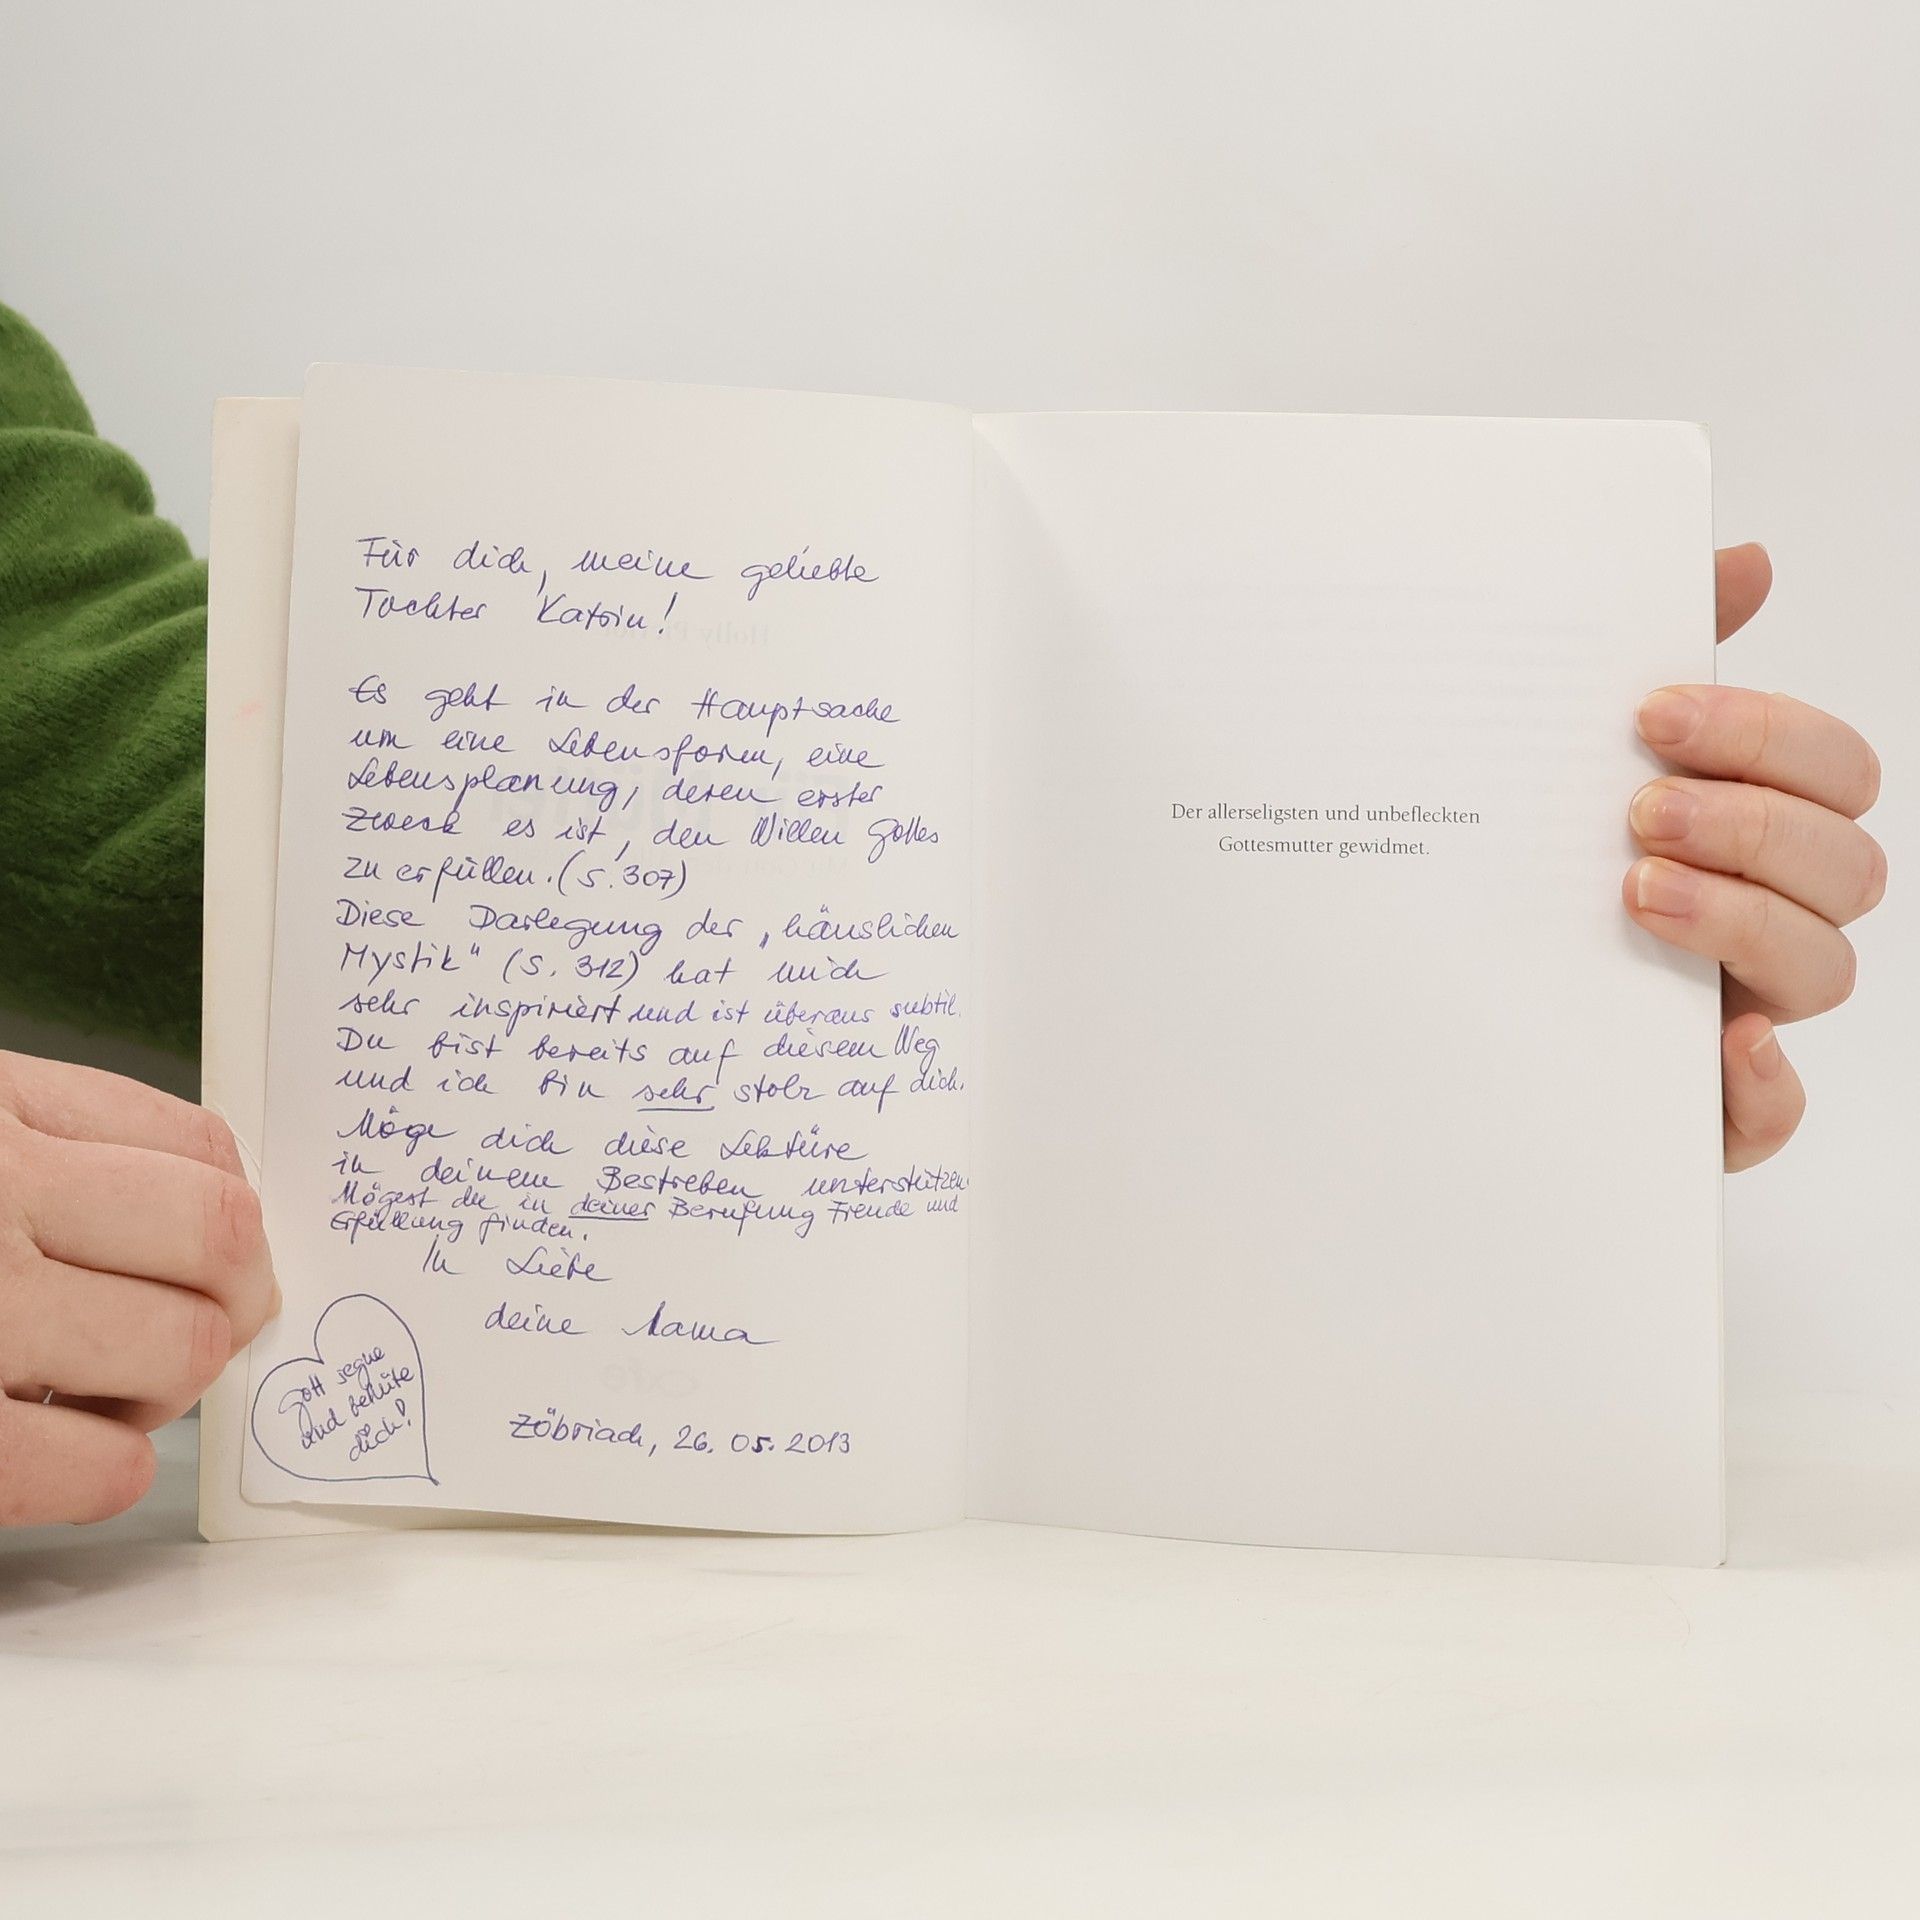 Für dich, meine geliebte
Tochter Katrin!
Es geht in der Hauptsache
um eine Lebensform, eine
Lebensplanung, deren erster
Zweck es ist, den Willen Gottes
zu erfüllen. (S. 307)
Diese Darlegung der „häuslichen
Mystik“ (S. 312) hat mich
sehr inspiriert und ist überaus subtil.
Du bist bereits auf diesem Weg
und ich bin sehr stolz auf dich.
Möge dich diese Lektüre
in deinem Bestreben unterstützen.
Mögest du in deiner Berufung Freude und
Erfüllung finden.
In Liebe
deine Mama
Gott segne
und behüte
dich!
Zöbriach, 26. 05. 2013
Der allerseligsten und unbefleckten
Gottesmutter gewidmet.